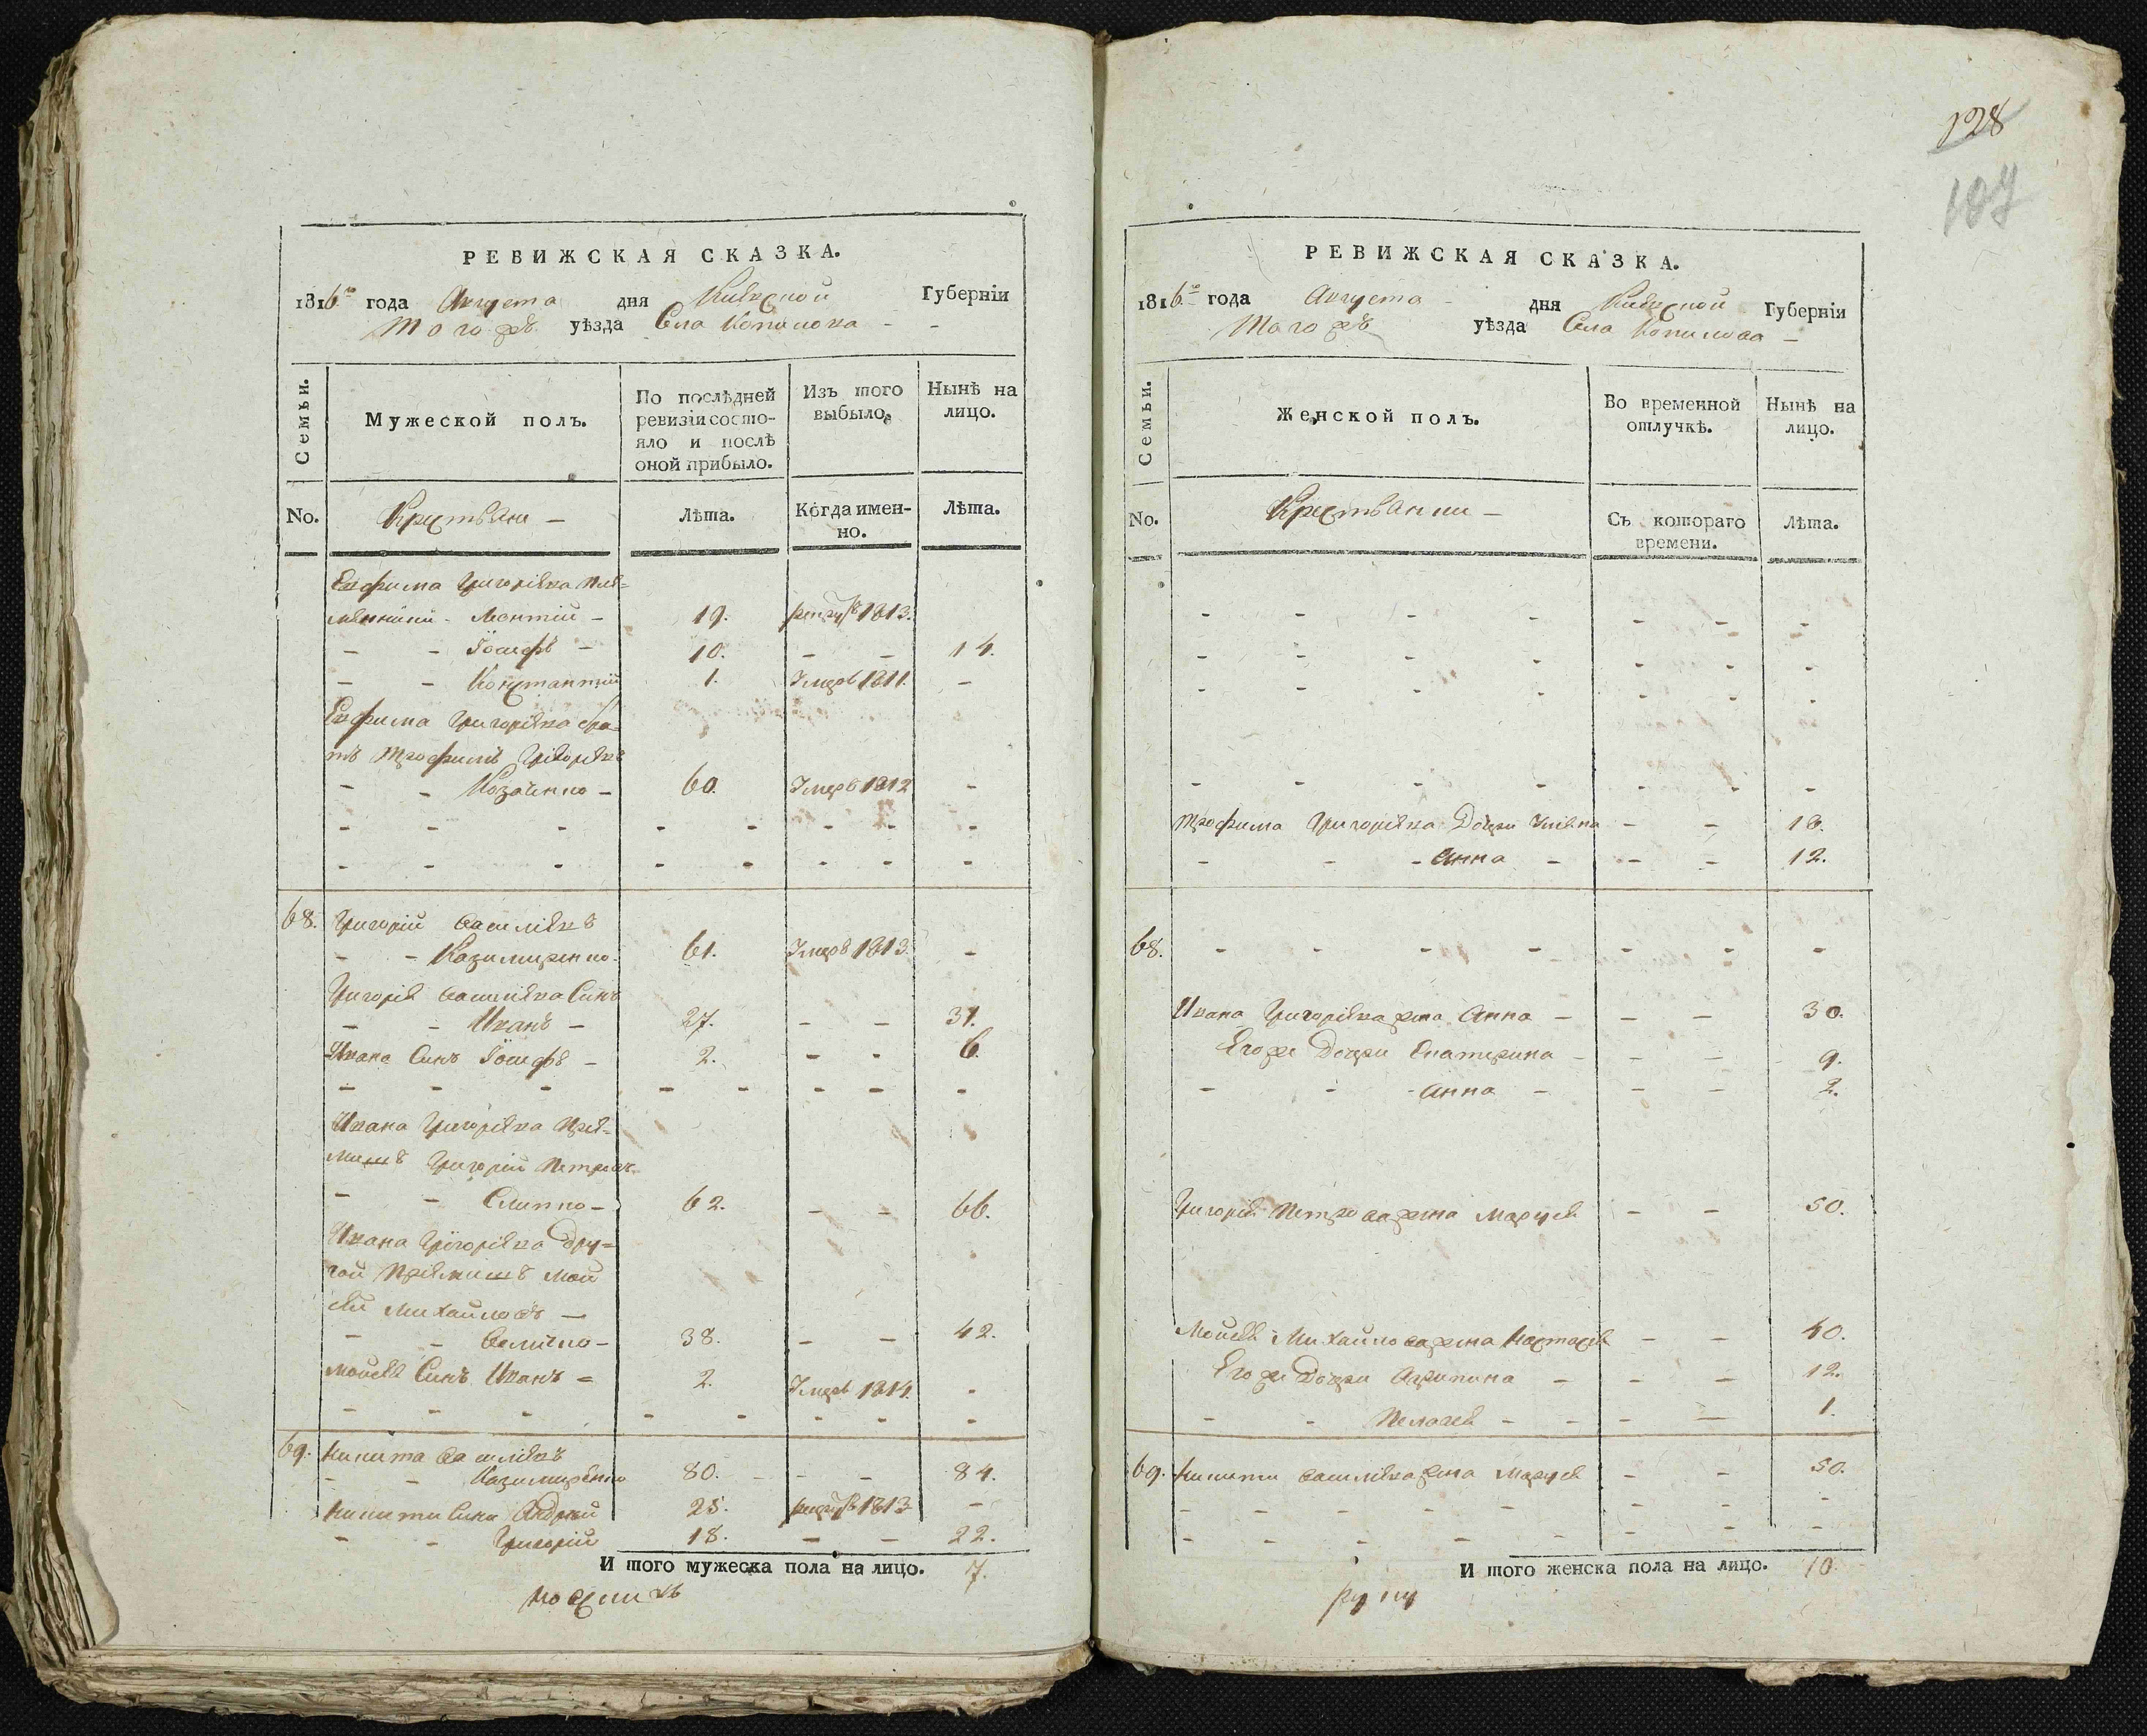 РЕВИЖСКАЯ СКАЗКА.
1816го года Августа дня Киевской Губерніи
Того жъ уѣзда Села Копилова
Семьи.
Мужеской полъ.
По послѣдней ревизіи состояло и послѣ оной прибыло.
Изъ того выбыло.
Нынѣ на лицо.
No.
Крестьяне —
Лѣта.
Когда именно.
Лѣта.
Евфима Григорієва плѣ-
мянники Леонтій — 19. 1813.
- - Іосифъ — 10. - - 14.
- - Константій 1. Умеръ 1811. -
Евфима Григорієва бра-
тъ Трофимъ Григорієвъ
- - Козаченко — 60. Умеръ 1812 -
68. Григорій Василієвъ
- - Казимиренко. 61. Умеръ 1813. -
Григорія Василієва Синъ
- - Иванъ — 27. - - 31.
Ивана Синъ Іосифъ — 2. - - 6.
Ивана Григорієва Прій-
мишъ Григорій Петровъ
- - 62. - - 66.
Ивана Григорієва дру-
гой Пріймишъ Мой
сѣй Михайловъ —
- - 38. - - 42.
Мойсѣя Синъ Иванъ = 2. Умеръ 1814. -
69. Никита Василієвъ
- - Казимиренко 80. - - 84.
Никити Сини Андрей 25. 1813 -
- - Григорій 18. - - 22.
И того мужеска пола на лицо. 7.
128
107
РЕВИЖСКАЯ СКАЗКА.
1816го года Августа дня Киевской Губерніи
Того жъ уѣзда Села Копилова —
Семьи.
Женской полъ.
Во временной отлучкѣ.
Нынѣ на лицо.
No.
Крестьянки —
Съ котораго времени.
Лѣта.
Трофима Григорієва Дочери Уліяна - - 18.
- - - Анна - - - 12.
68. - - - - - - -
Ивана Григорієва жена Анна - - - 30.
Его же Дочери Екатерина - - - 9.
- - - Анна - - - 2.
Григорія Петрова жена Марія - - 50.
Мойсѣя Михайлова жена Настасія - - 40.
Его же Дочери Агрипина - - - 12.
- - Пелагея - - - - 1.
69. Никити Василієва жена Марія - - 50.
И того женска пола на лицо. 10.